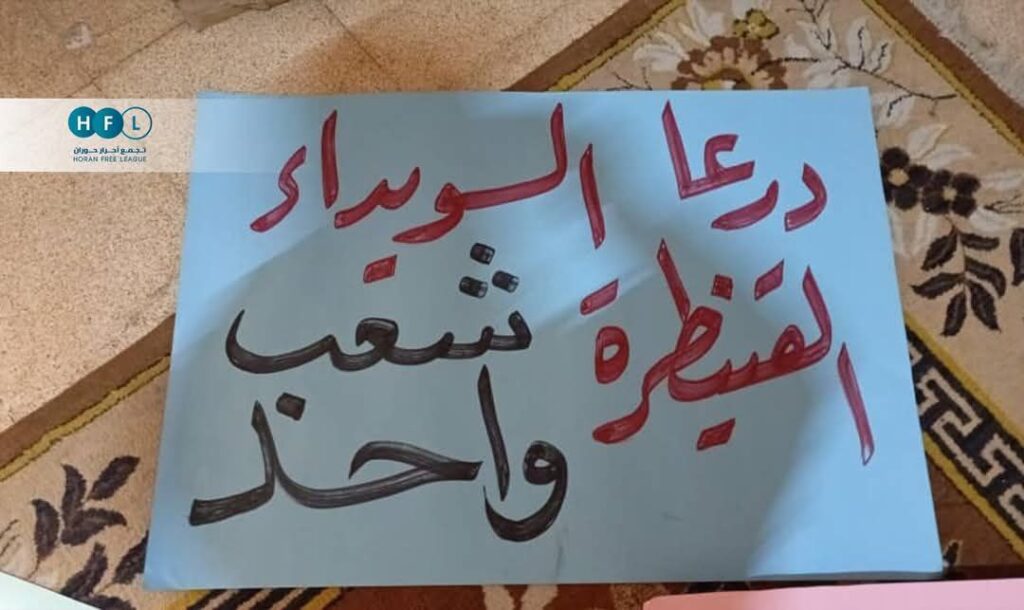 HFL
تجمع أحرار حوران
HORAN FREE LEAGUE
درعا السويداء
القنيطرة
شعب
واحد